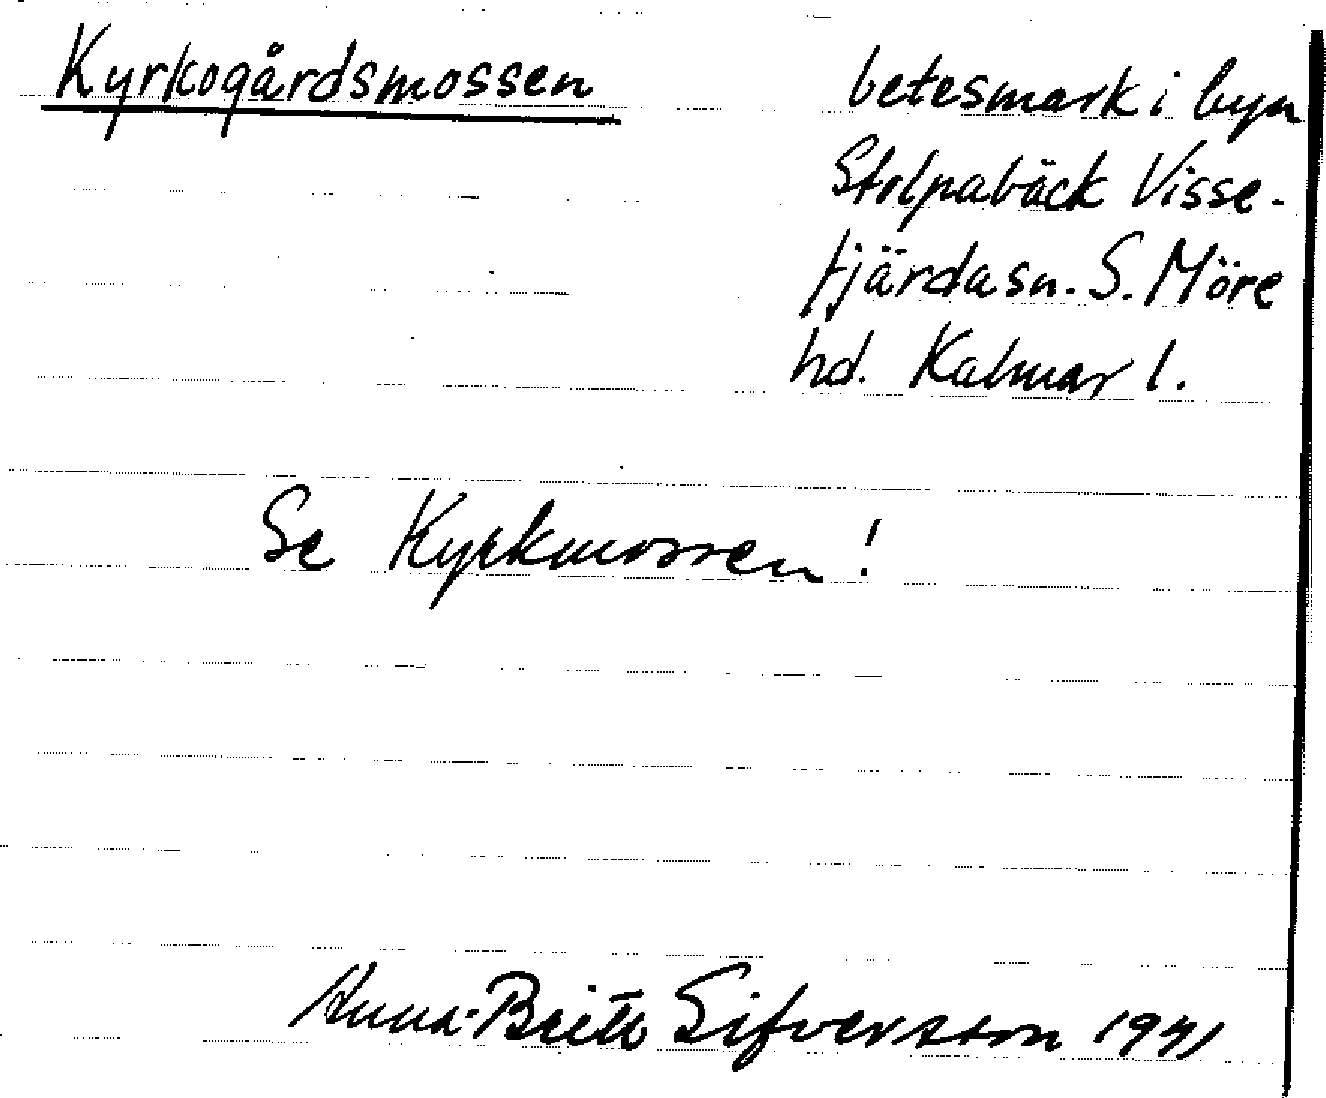 Kyrkogårdsmossen
betesmark i byn
Stolpabäck Visse-
fjärda sn. S. Möre
hd. Kalmar l.
Se Kyrkmossen!
Anna-Britt Sifversson 1941